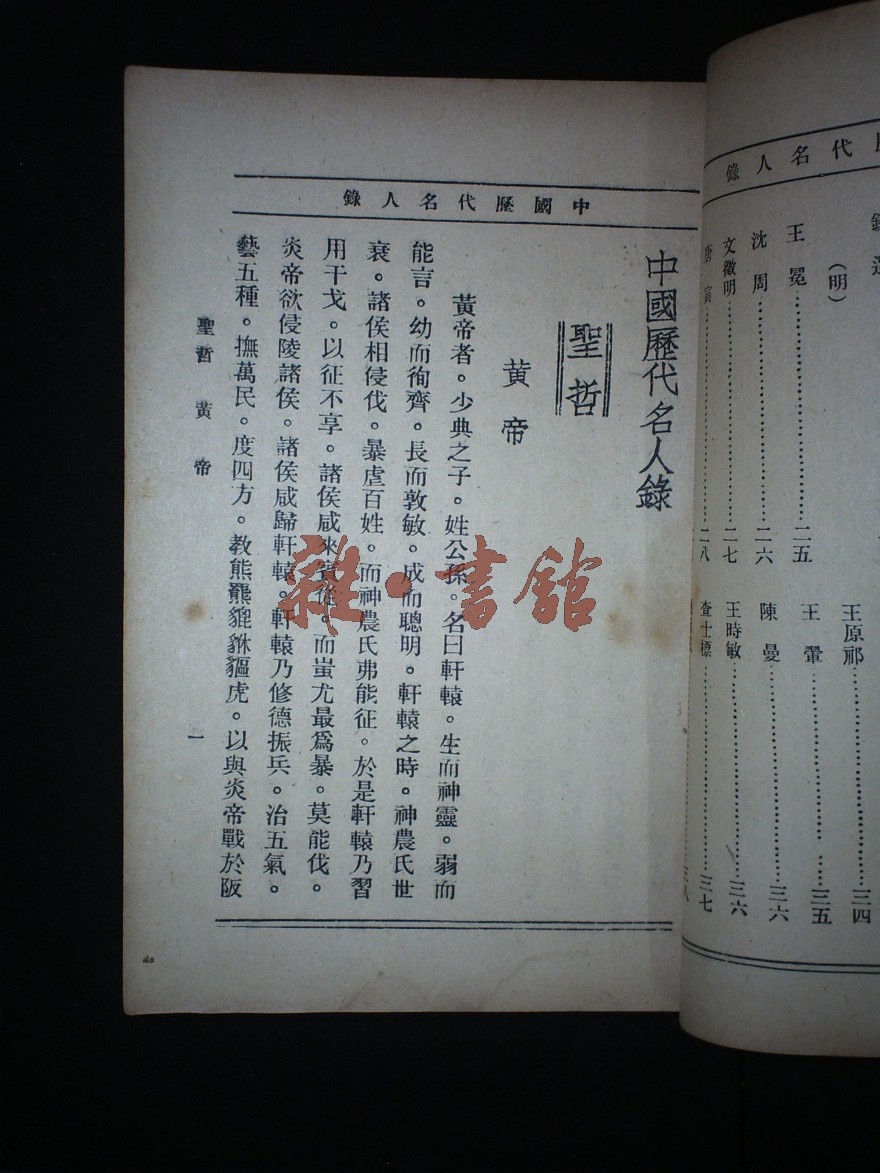 歷代名人錄
(明)
王冕……二五
沈周……二六
文徵明……二七
唐寅……二八
王原祁……三四
王翬……三五
陳曼……三六
王時敏……三六
查士標……三七
中國歷代名人錄
中國歷代名人錄
聖哲
黃帝
黃帝者。少典之子。姓公孫。名曰軒轅。生而神靈。弱而
能言。幼而徇齊。長而敦敏。成而聰明。軒轅之時。神農氏世
衰。諸侯相侵伐。暴虐百姓。而神農氏弗能征。於是軒轅乃習
用干戈。以征不享。諸侯咸來賓從。而蚩尤最爲暴。莫能伐。
炎帝欲侵陵諸侯。諸侯咸歸軒轅。軒轅乃修德振兵。治五氣。
藝五種。撫萬民。度四方。教熊羆貔貅貙虎。以與炎帝戰於阪
聖哲 黃帝
一
雜·書館